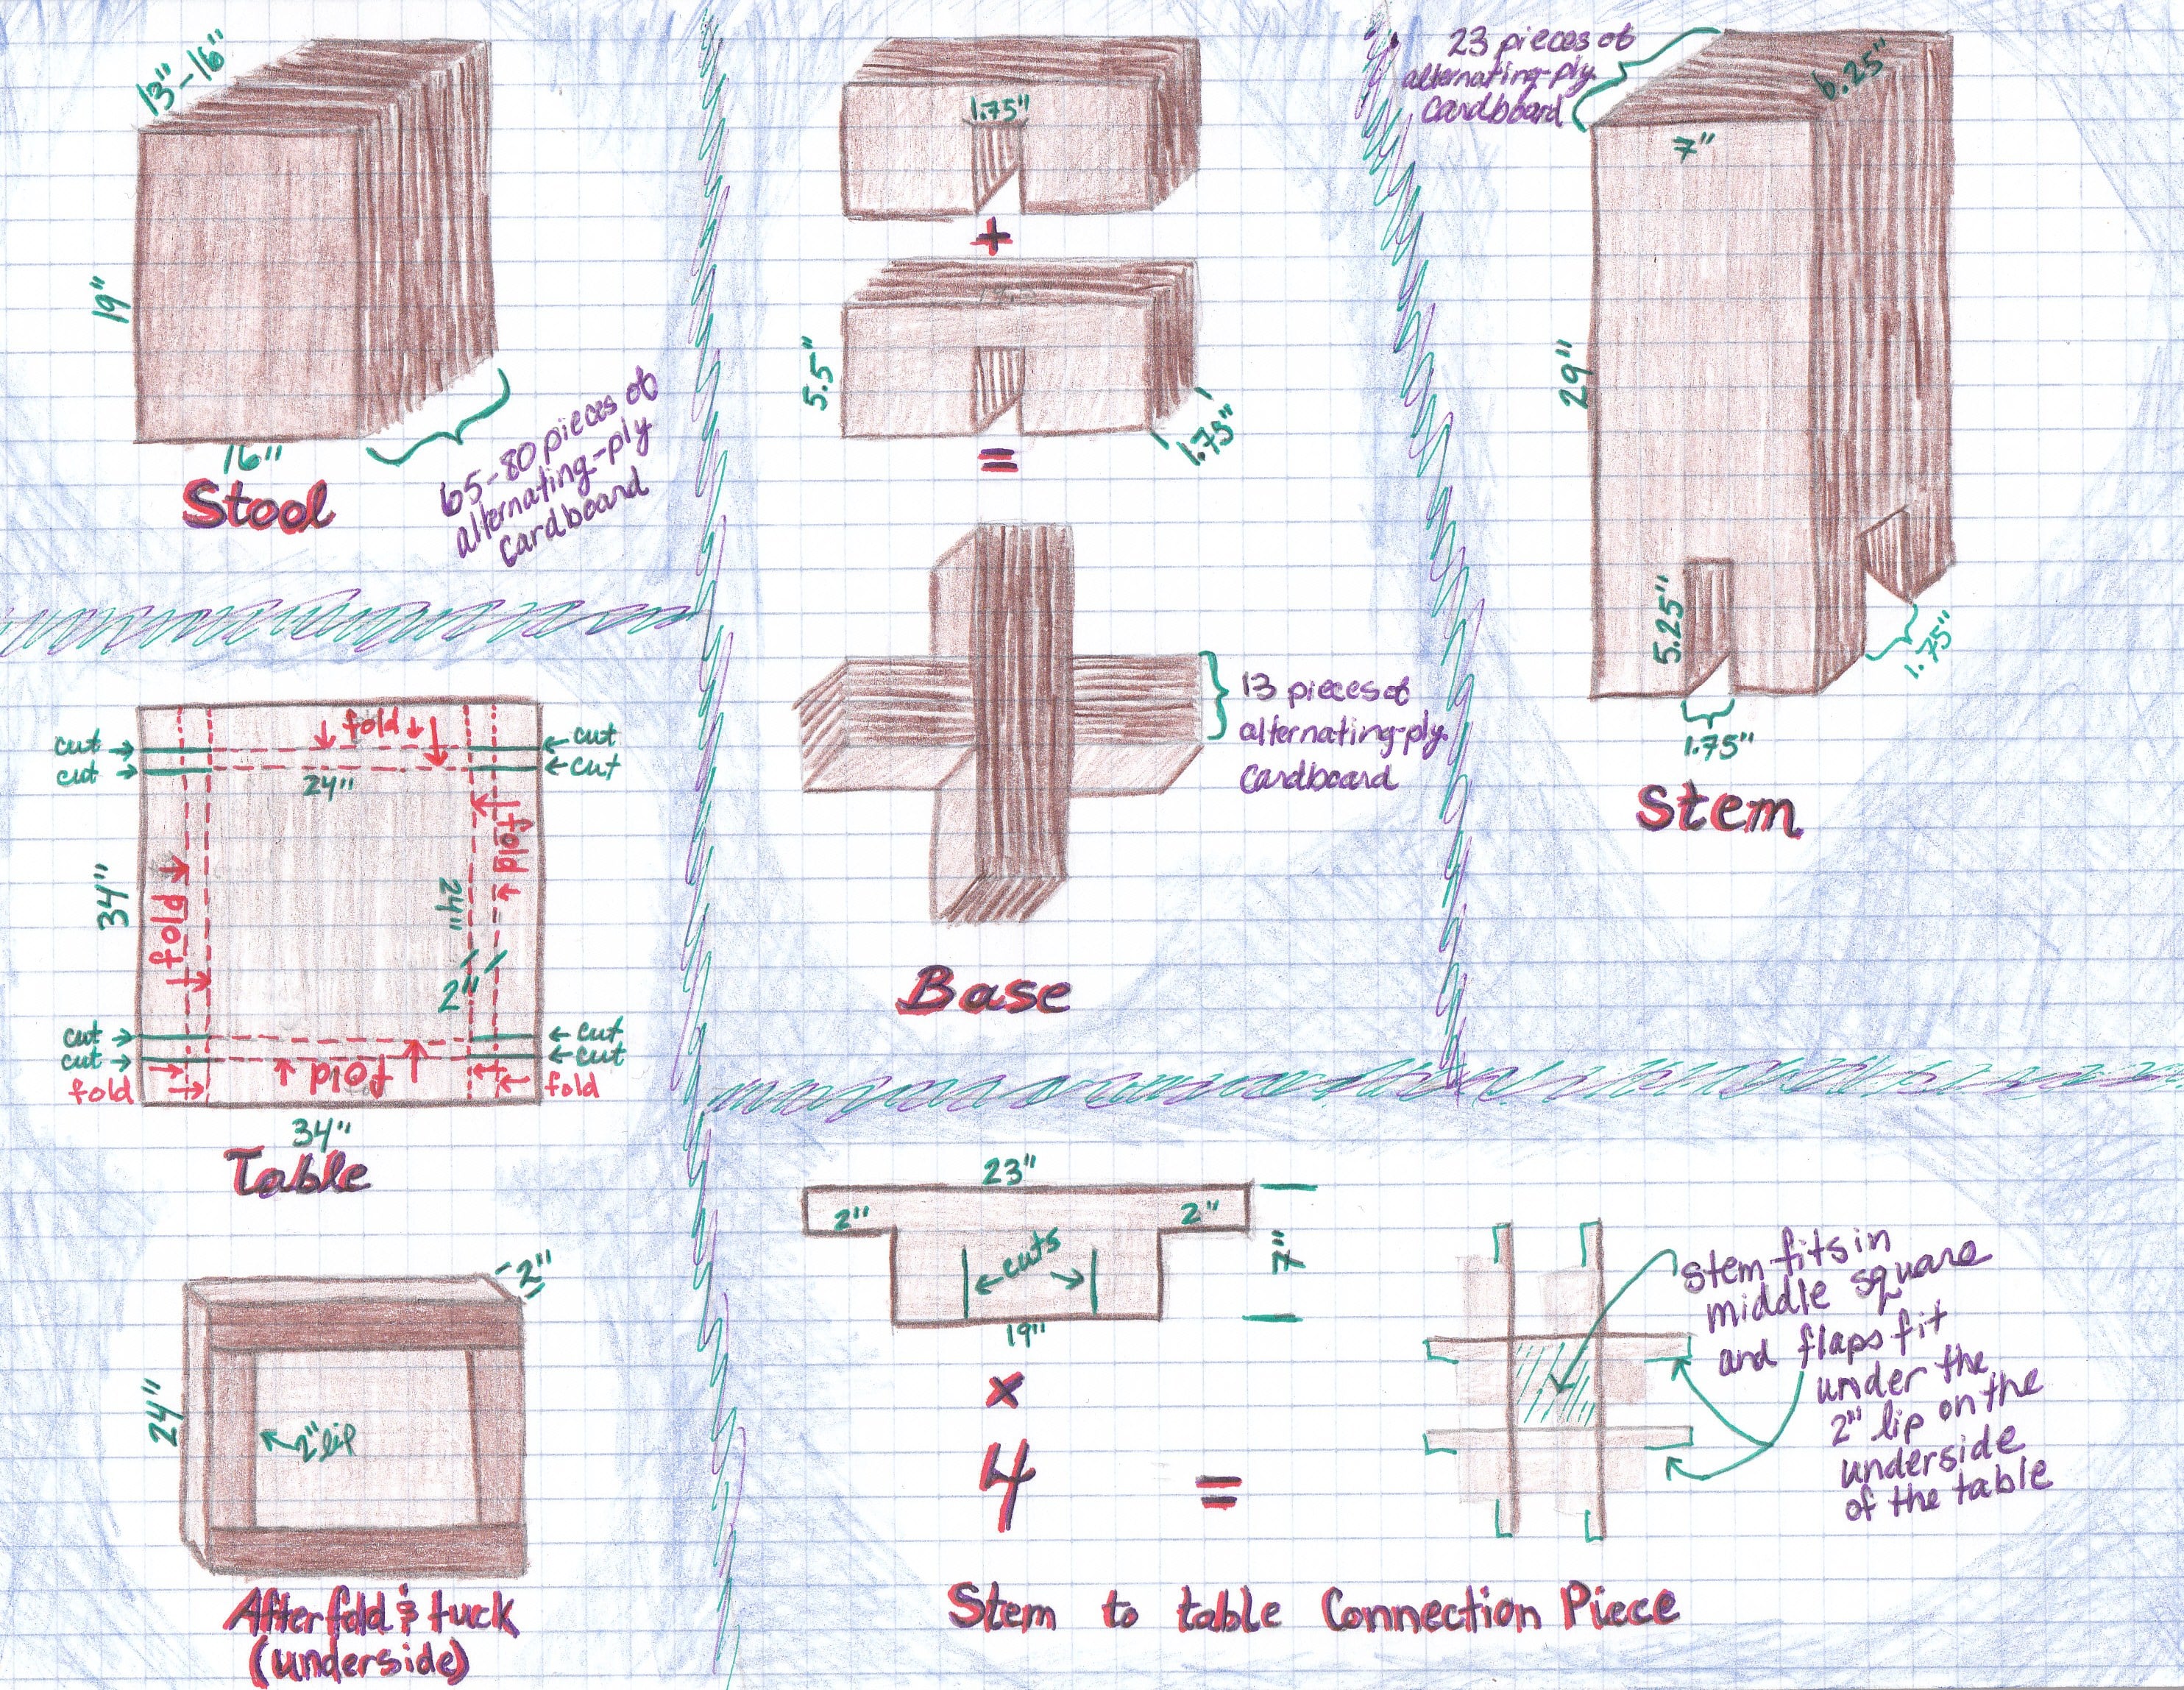 13"-16"
19"
16"
65-80 pieces of
alternating-ply
cardboard
Stool
1.75"
+
5.5"
1.75"
=
13 pieces of
alternating-ply
Cardboard
Base
23 pieces of
alternating-ply
Cardboard
6.25"
7"
29"
5.25"
1.75"
1.75"
Stem
cut
fold
cut
cut
24"
cut
fold
34"
fold
24"
2"
cut
cut
cut
cut
fold
fold
fold
34"
Table
2"
24"
2" lip
After fold & tuck
(underside)
23"
2"
2"
cuts
7"
19"
x
4
=
Stem fits in
middle square
and flaps fit
under the
2" lip on the
underside
of the table
Stem to table Connection Piece